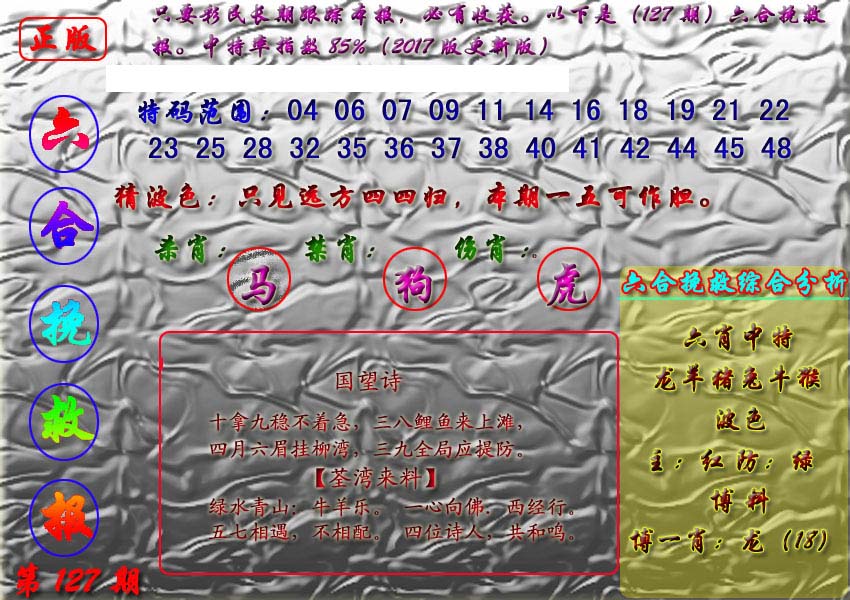 正版
只要彩民长期跟踪本报，必有收获。以下是（127期）六合挽救
报。中特率指数85%（2017版更新版）
六合挽救报
第127期
特码范围：04 06 07 09 11 14 16 18 19 21 22
23 25 28 32 35 36 37 38 40 41 42 44 45 48
猜波色：只见远方四四归，本期一五可作胆。
杀肖：马 禁肖：狗 伤肖：虎
国望诗
十拿九稳不着急，三八鲤鱼来上滩，
四月六眉挂柳湾，三九全局应提防。
【荃湾来料】
绿水青山：牛羊乐。 一心向佛：西经行。
五七相遇，不相配。 四位诗人，共和鸣。
六合挽救综合分析
六肖中特
龙羊猪兔牛猴
波色
主：红防：绿
博料
博一肖：龙（18）